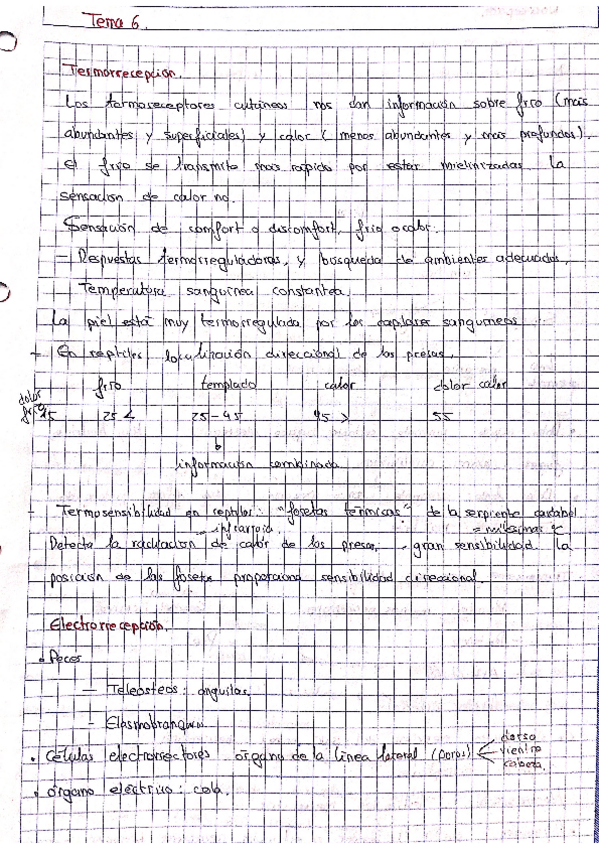 Tema 6.
Termorrecepción.
Los termoreceptores cutáneos nos dan información sobre frío (más
abundantes y superficiales) y calor (menos abundantes y más profundos),
el frío se transmite más rápido por estar mielinizadas la
sensación de calor no.
Sensación de comfort o discomfort, frío o calor.
- Respuestas termorreguladoras, y búsqueda de ambientes adecuados,
Temperatura sanguínea constante
La piel está muy termorregulada por los capilares sanguíneos
+ En reptiles localización direccional de las presas.
dolor frío frío templado calor dolor calor
15 25 < 25-45 45 > 55
información combinada
- Termosensibilidad en reptiles: "fosetas térmicas" de la serpiente cascabel
infrarroja = milésimas ºC
Detecta la radiación de calor de las presas, gran sensibilidad. La
posición de las fosetas proporciona sensibilidad direccional.
Electrorrecepción.
• Peces
- Teleósteos: anguilas.
- Elasmobranquios
• Células electrorectores órgano de la línea lateral (poros) dorso
vientre
cabeza.
• órgano eléctrico: cola.